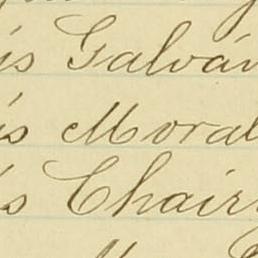 is Galván
is Moral
is Chair